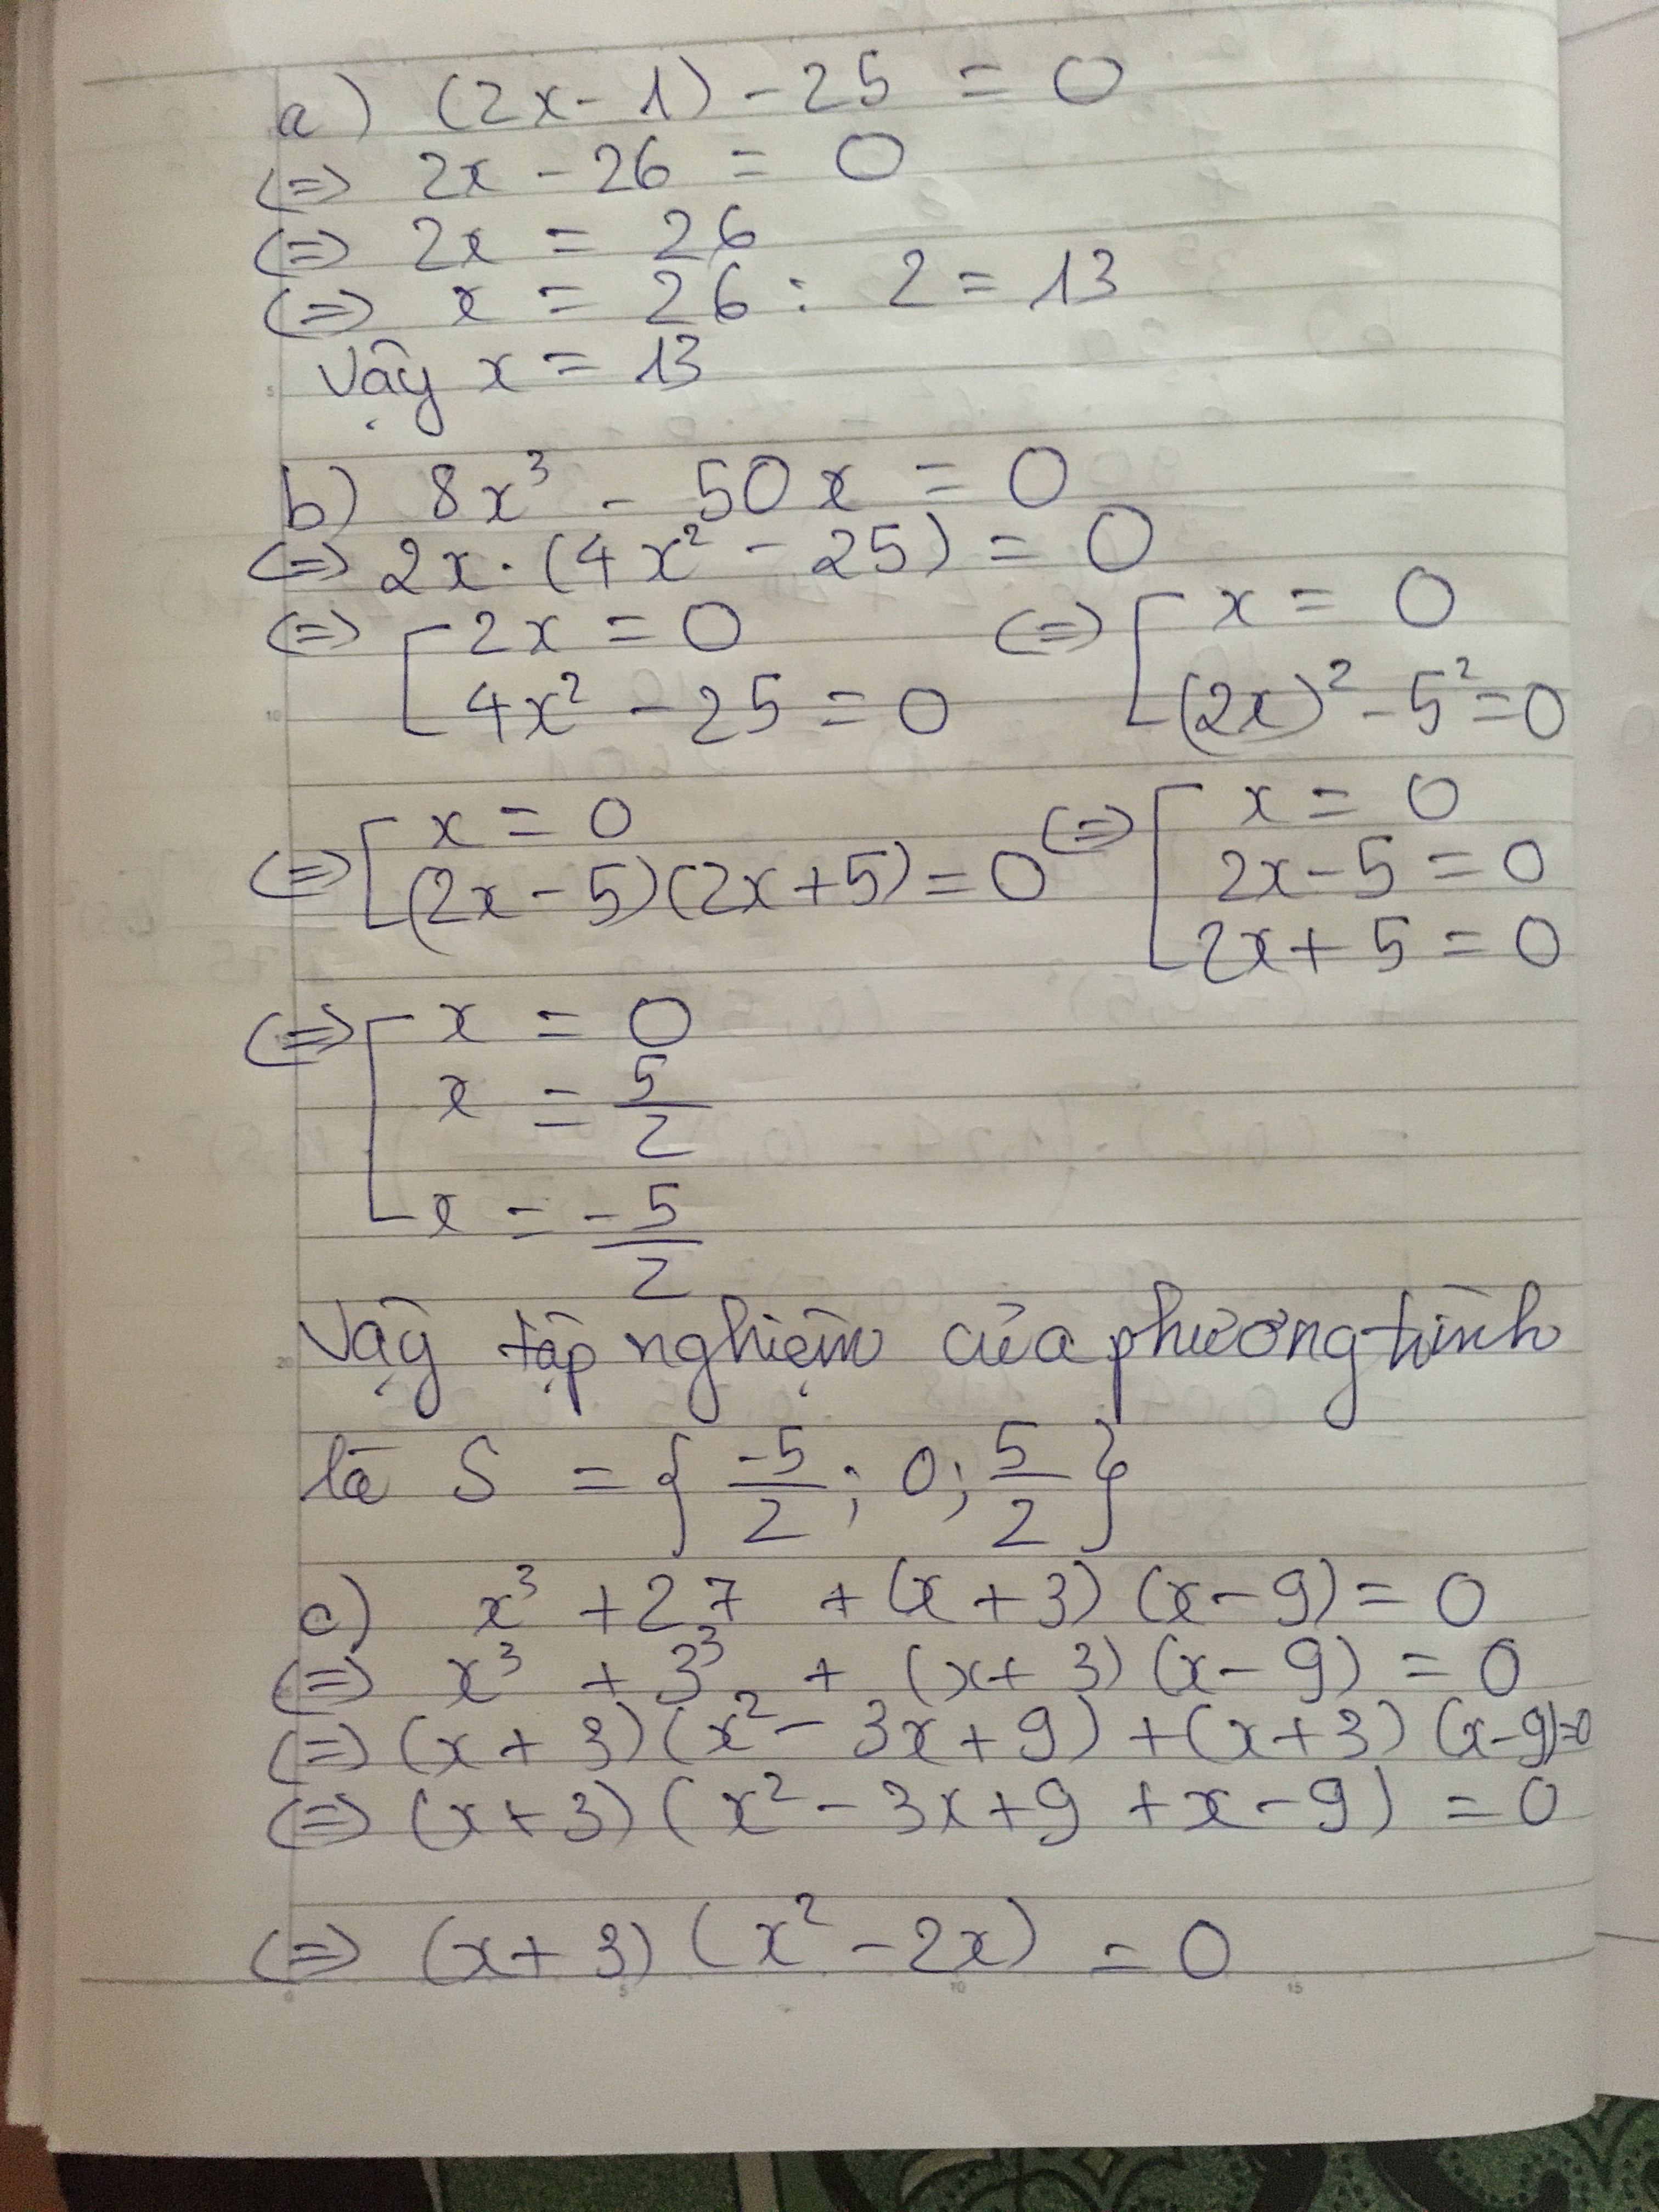 a) (2x - 1) - 25 = 0
(=) 2x - 26 = 0
(=) 2x = 26
(=) x = 26 : 2 = 13
Vậy x = 13
b) 8x³ - 50x = 0
(=) 2x . (4x² - 25) = 0
(=) [ 2x = 0 (=) [ x = 0
4x² - 25 = 0 (2x)² - 5² = 0
(=) [ x = 0 (=) [ x = 0
(2x - 5)(2x + 5) = 0 2x - 5 = 0
2x + 5 = 0
(=) [ x = 0
x = 5/2
x = -5/2
Vậy tập nghiệm của phương trình
là S = { -5/2 ; 0 ; 5/2 }
c) x³ + 27 + (x + 3) (x - 9) = 0
(=) x³ + 3³ + (x + 3) (x - 9) = 0
(=) (x + 3) (x² - 3x + 9) + (x + 3) (x - 9) = 0
(=) (x + 3) (x² - 3x + 9 + x - 9) = 0
(=) (x + 3) (x² - 2x) = 0